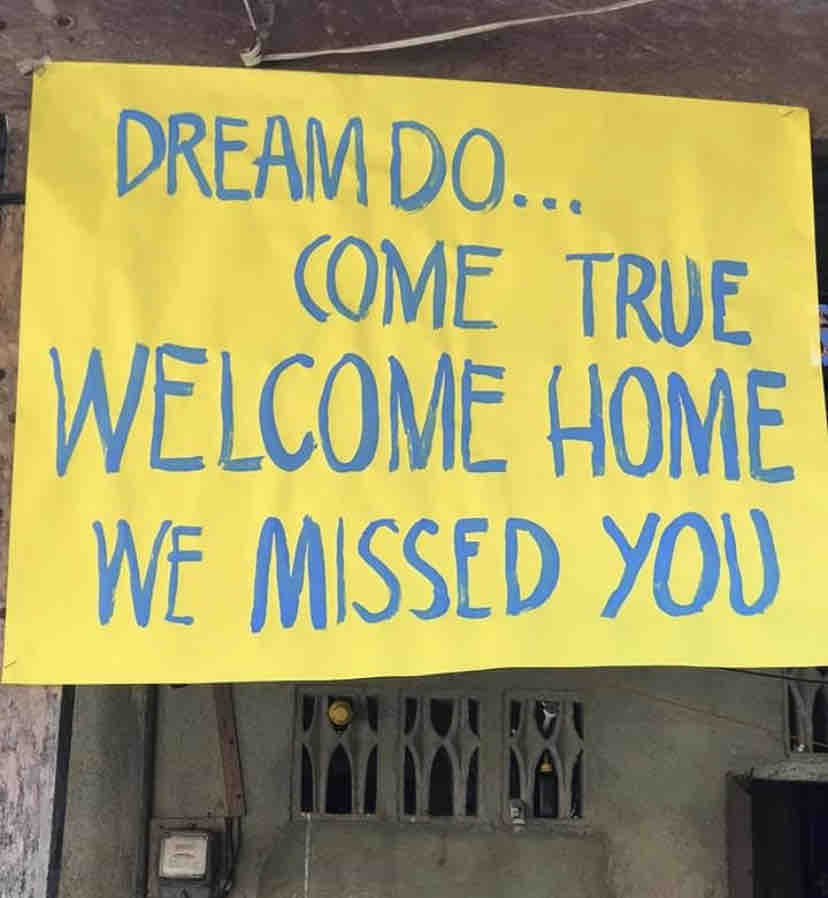 DREAM DO...
COME TRUE
WELCOME HOME
WE MISSED YOU